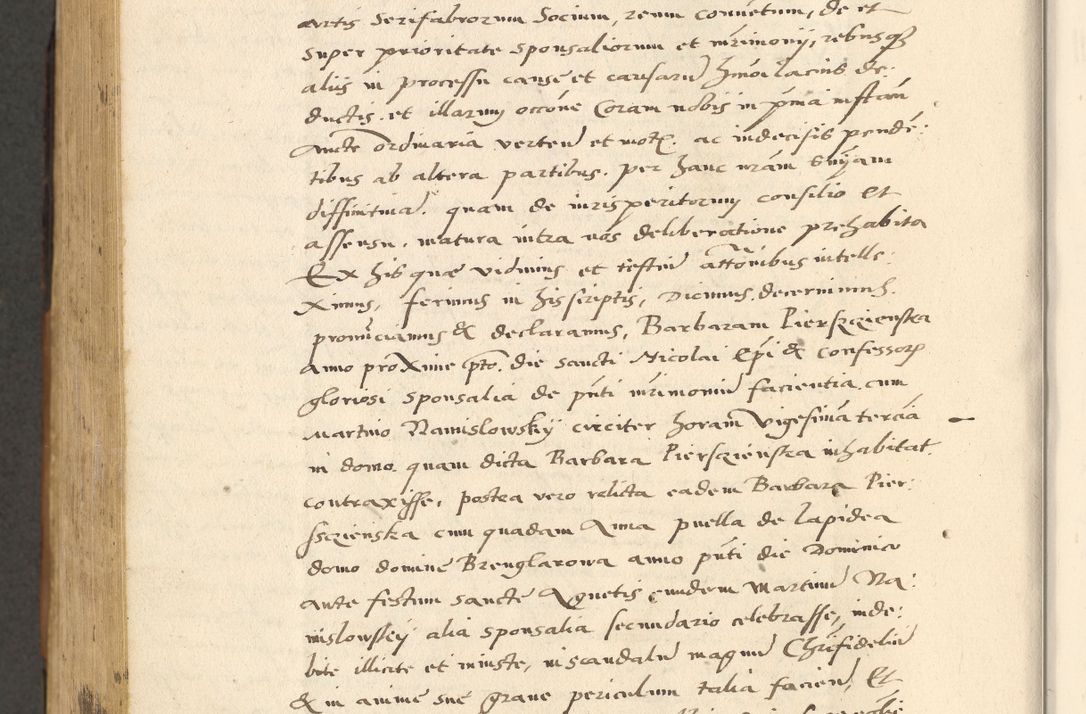 artis Serifabrorum Socium, reum conuetum, de et
super prioritate sponsaliorum et mrimonij, rebusq3
aliis in processu cause et causaru hmoi lacius de:
ductis. et illarum occone Coram nobis in pma instan
aucte ordinaria verten et mot. ac indecisis pende:
tibus ab altera partibus. per hanc nram Snyam
diffinitiua. quam de iurisperitorum consilio et
assensu. matura intra nos deliberatione prehabita
Ex his quæ vidimus et testiu attonibus intelle:
Ximus, ferimus in his scriptis, Dicimus, decernimus.
pronuciamus & declaramus, Barbaram Pierszcienska
anno proxime pto. die sancti Nicolai Epi & confessor
gloriosi sponsalia de pnti mrimoniu facientia cum
Martino Namislowskij circiter horam vigesima tercia
in domo. quam dicta Barbara Pierszcienska inhabitat.
contraxisse, postea vero relicta eadem Barbara Pier:
sscienska cum quadam Anna puella de lapidea
domo domine Brenglarowa anno pnti die Dominico
ante festum sancte Agnetis eundem Martinu Na:
mislowskij alia sponsalia secundario celebrasse, inde:
bite illicite et iniuste, in scandalu magnu Chrifideliu
& in anime sue graue periculum talia facien, Et